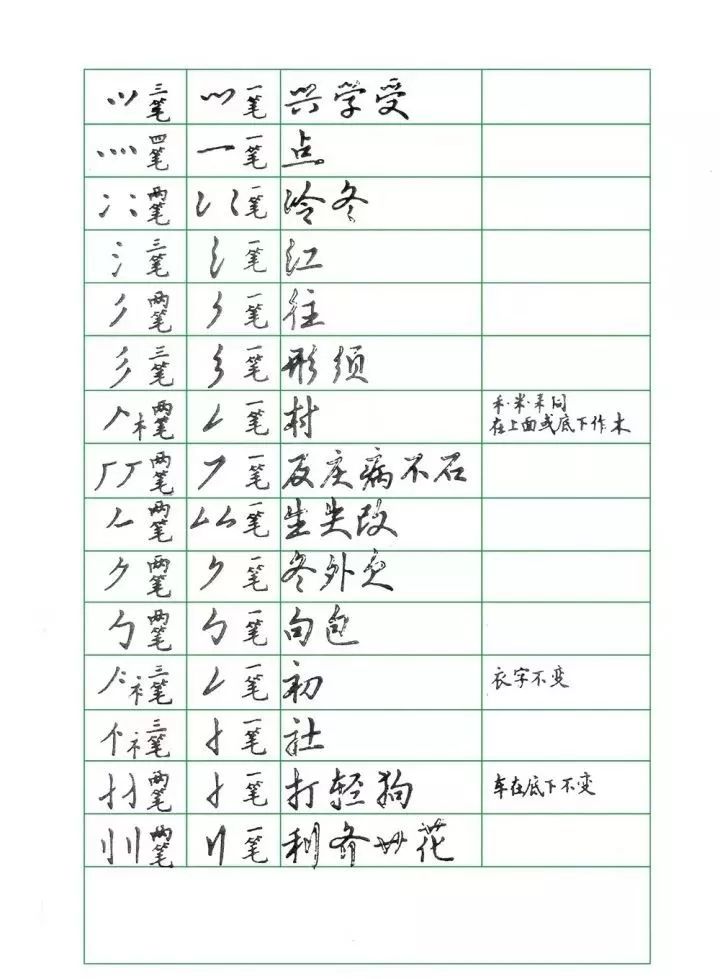 ⺍三笔 一笔 兴学受
灬四笔 一 一笔 点
冫两笔 一笔 冷冬
氵三笔 一笔 江
彳两笔 一笔 往
彡三笔 一笔 形须
木两笔 一笔 村 禾·米·耒同
在上面或底下作木
厂丆两笔 一笔 反疾病不石
𠂉两笔 一笔 生失改
两笔 一笔 冬外久
勹两笔 一笔 句包
衤三笔 一笔 初 衣字不变
礻三笔 一笔 社
两笔 一笔 打轻狗 车在底下不变
刂两笔 一笔 利齐妙花